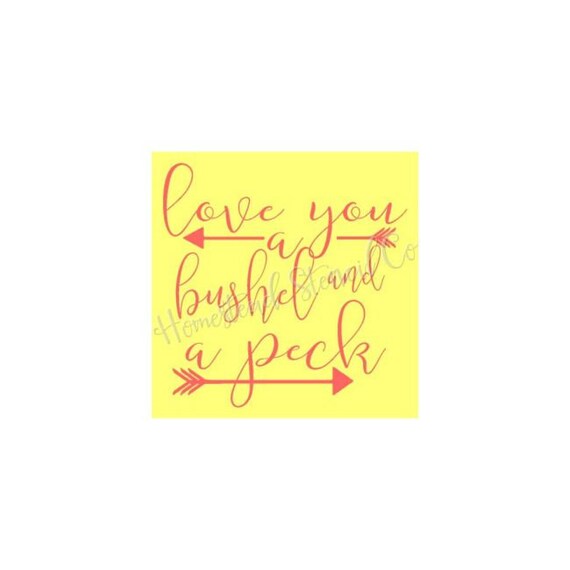 love you
a
bushel and
a peck
Homestead Stencil Co